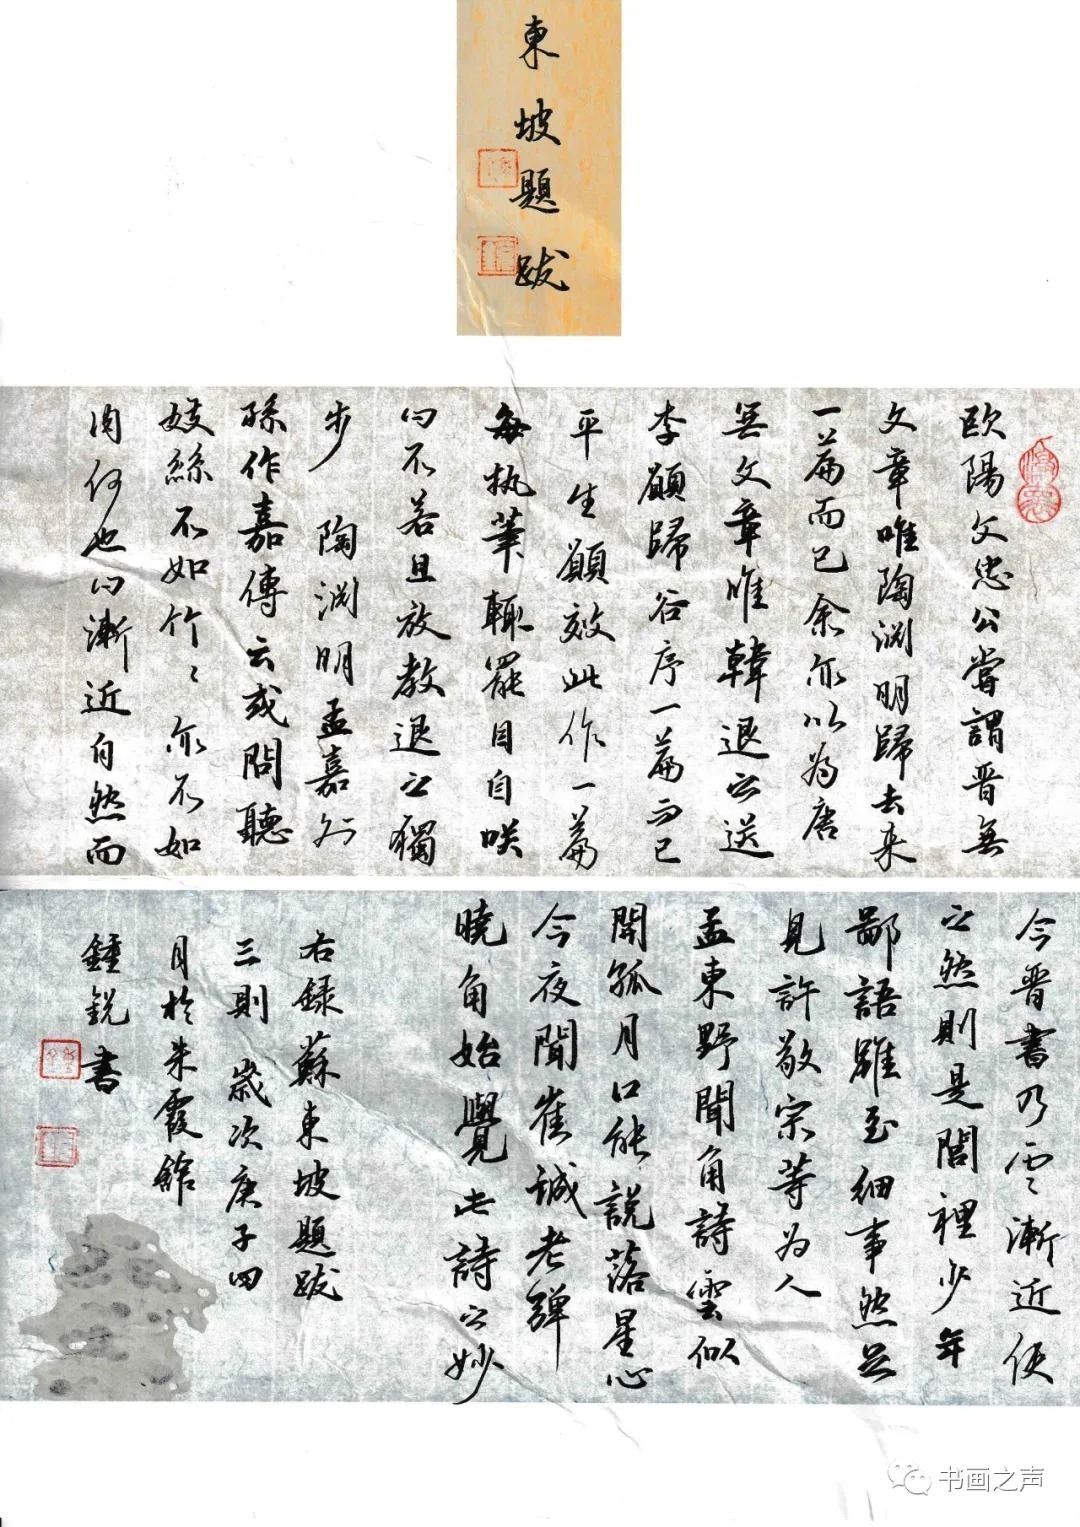 東坡題跋
欧陽文忠公嘗謂晋無
文章唯陶渊明歸去来
一篇而已余亦以為唐
無文章唯韓退之送
李愿歸谷序一篇而已
平生願效此作一篇
每执筆輒罷因自咲
曰不若且放教退之獨
步 陶渊明孟嘉外
孫作嘉傳云或問聽
妓絲不如竹〻亦不如
肉何也曰漸近自然而
今晋書乃云〻漸近使
之然則是閭裡少年
鄙語雖至细事然足
見許敬宗等为人
孟東野聞角詩雲似
開孤月口能說落星心
今夜聞崔诚老弹
曉角始覺此詩之妙
右録蘇東坡題跋
三則 歲次庚子四
月於朱霞館
鍾銳書
书画之声